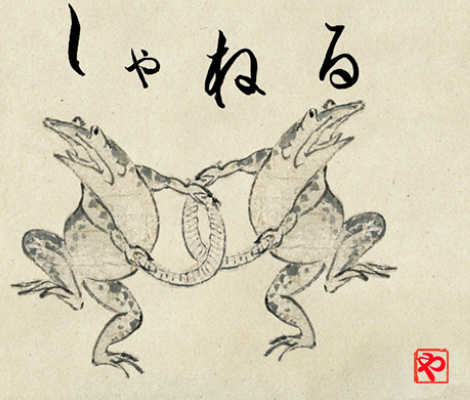 しゃねる
や